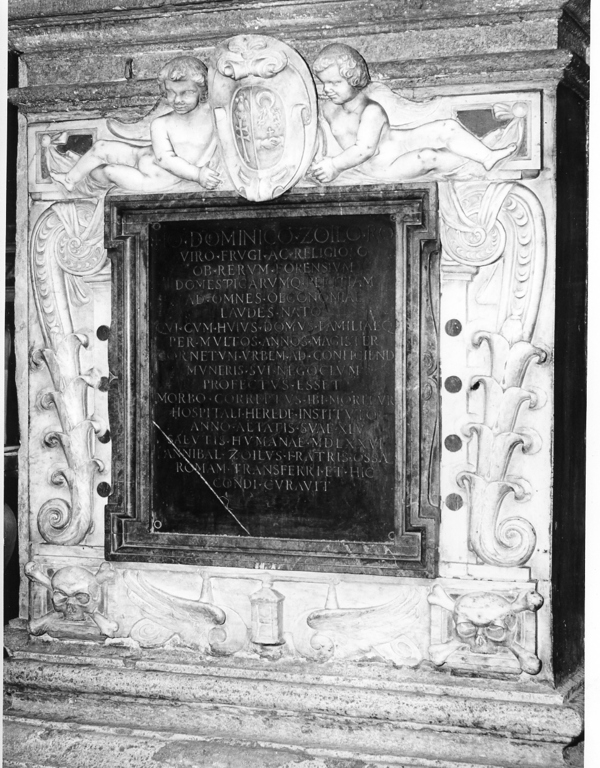 DOMINICO·ZOILO
VIRO·FRVGI·AC·RELIGIO
OB·RERVM·FORENSVM
DOMESTICARVMQ
AD·OMNES·OECONOMIA
LAVDES·NATO
QVI·CVM·HVIVS·DOMVS·FAMILIAE
PER·MVLTOS·ANNOS·MAGISTER
CORNETVM·VRBEM·AD·CONFICIEND
MVNERIS·SVI·NEGOCIVM
PROFECTVS·ESSET
MORBO·CORREPTVS·IBI·MORITVR
HOSPITALI·HEREDE·INSTITVTO
ANNO·AETATIS·SVAE
SALVTIS·HVMANAE
ANNIBAL·ZOILVS·FRATRIS·OSSA
ROMAM·TRANSFERRI·ET·HIC
CONDI·CVRAVIT